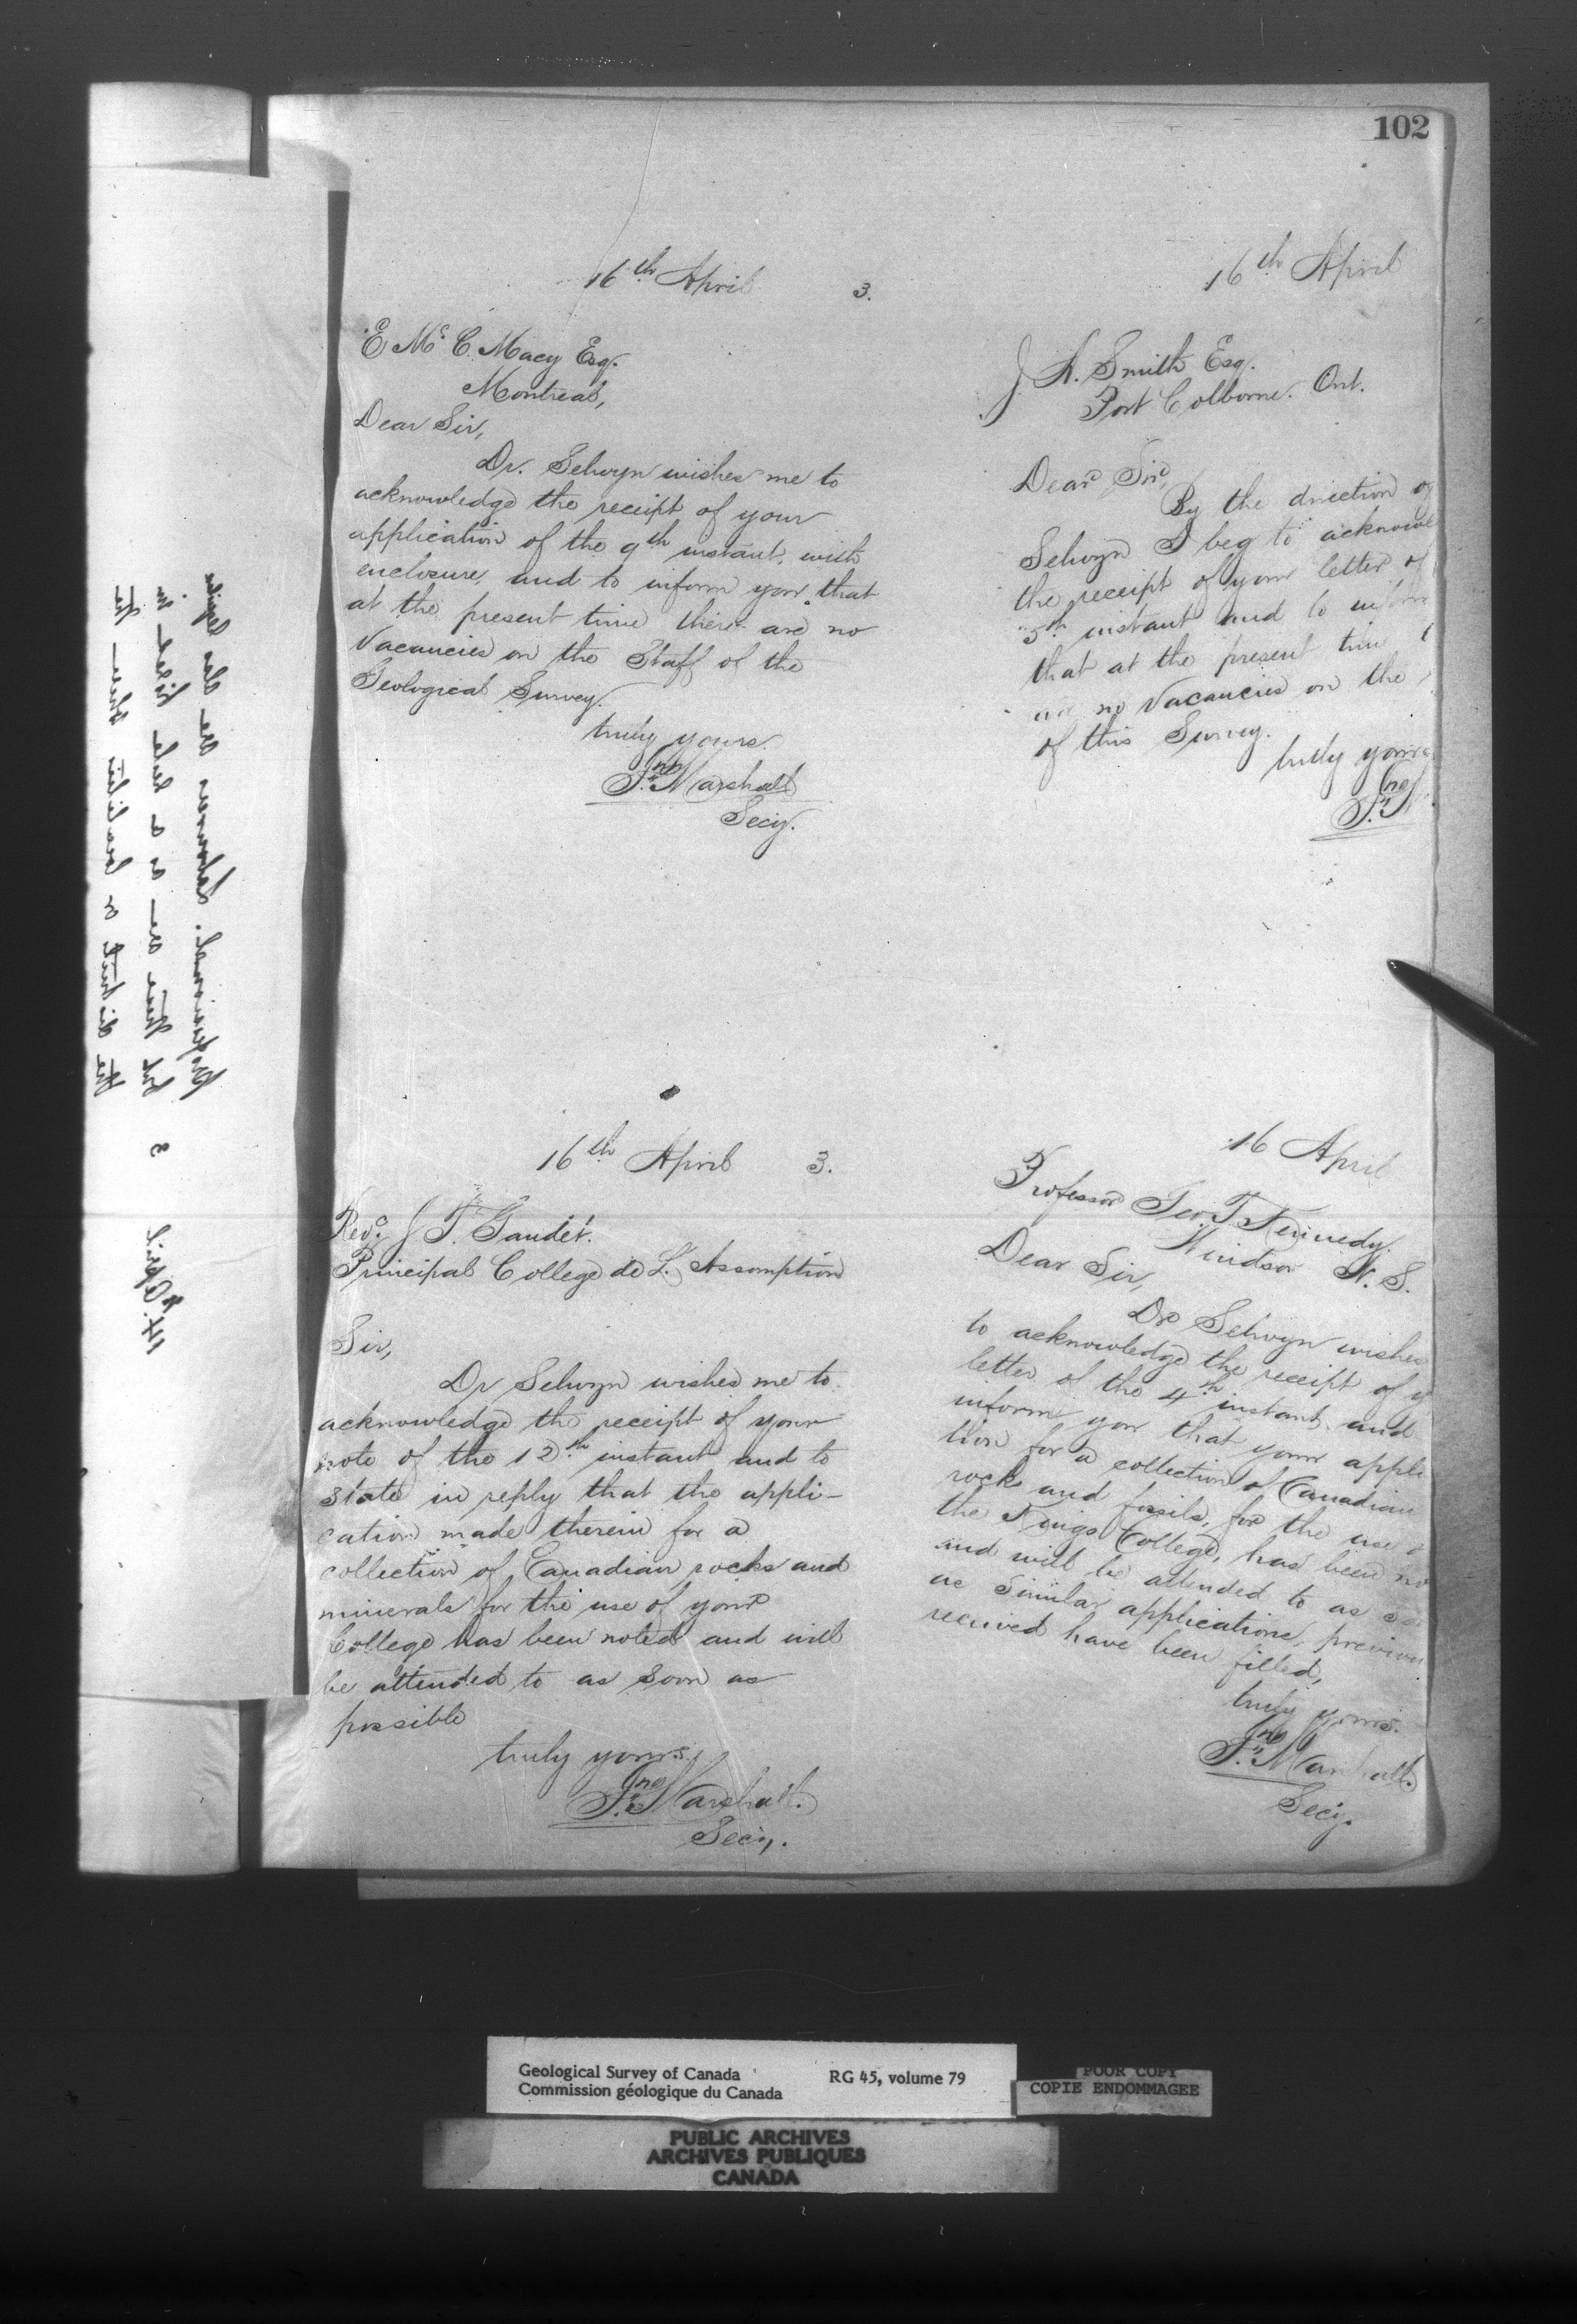 102
16th April 3.
E Mc C. Macy Esq.
Montreal,
Dear Sir,
Dr. Selwyn wishes me to
acknowledge the receipt of your
application of the 9th instant, with
enclosure, and to inform you that
at the present time there are no
Vacancies on the Staff of the
Geological Survey.
truly yours.
Jno Marshall
Secy.
16th April
J. H. Smith Esq.
Port Colborne. Ont.
Dear Sir,
By the direction of
Selwyn I beg to acknowl
the receipt of your letter of
5th instant and to inform
that at the present time
are no Vacancies on the
of this Survey.
truly yours
Jno M
16th April 3.
Revd. J T. Gaudet.
Principal College de L. Assomption
Sir,
Dr Selwyn wishes me to
acknowledge the receipt of your
note of the 12th instant and to
state in reply that the appli-
cation made therein for a
collection of Canadian rocks and
minerals for the use of your
College has been noted and will
be attended to as soon as
possible
truly yours,
Jno Marshall.
Secy.
16 April
Professor Geo. T Kennedy.
Windsor N. S.
Dear Sir,
Dr Selwyn wishes
to acknowledge the receipt of y
letter of the 4th instant, and
inform you that your appli
tion for a collection of Canadian
rocks and fossils, for the use o
the Kings College, has been no
and will be attended to as soo
as Similar applications, previou
received have been filled,
truly yours.
Jno Marshall.
Secy.
14th April 3
but there are a
professional. Labourers are also
Geological Survey of Canada RG 45, volume 79
Commission géologique du Canada
POOR COPY
COPIE ENDOMMAGEE
PUBLIC ARCHIVES
ARCHIVES PUBLIQUES
CANADA